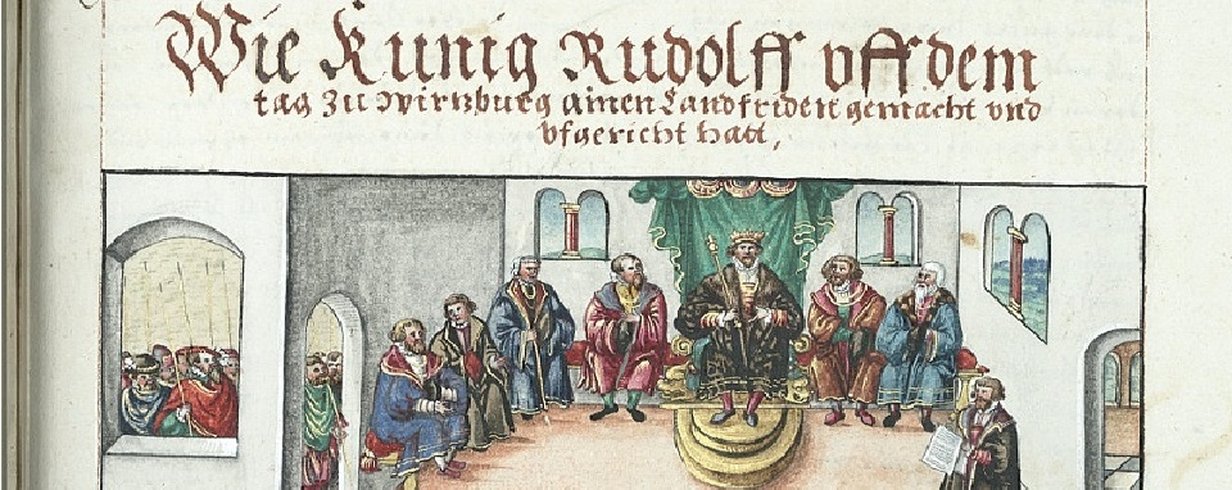 Wie Kunig Rudolff vff dem
tag zu Wirtzburg ainen Landfriden gemacht vnd
vfgericht hatt,